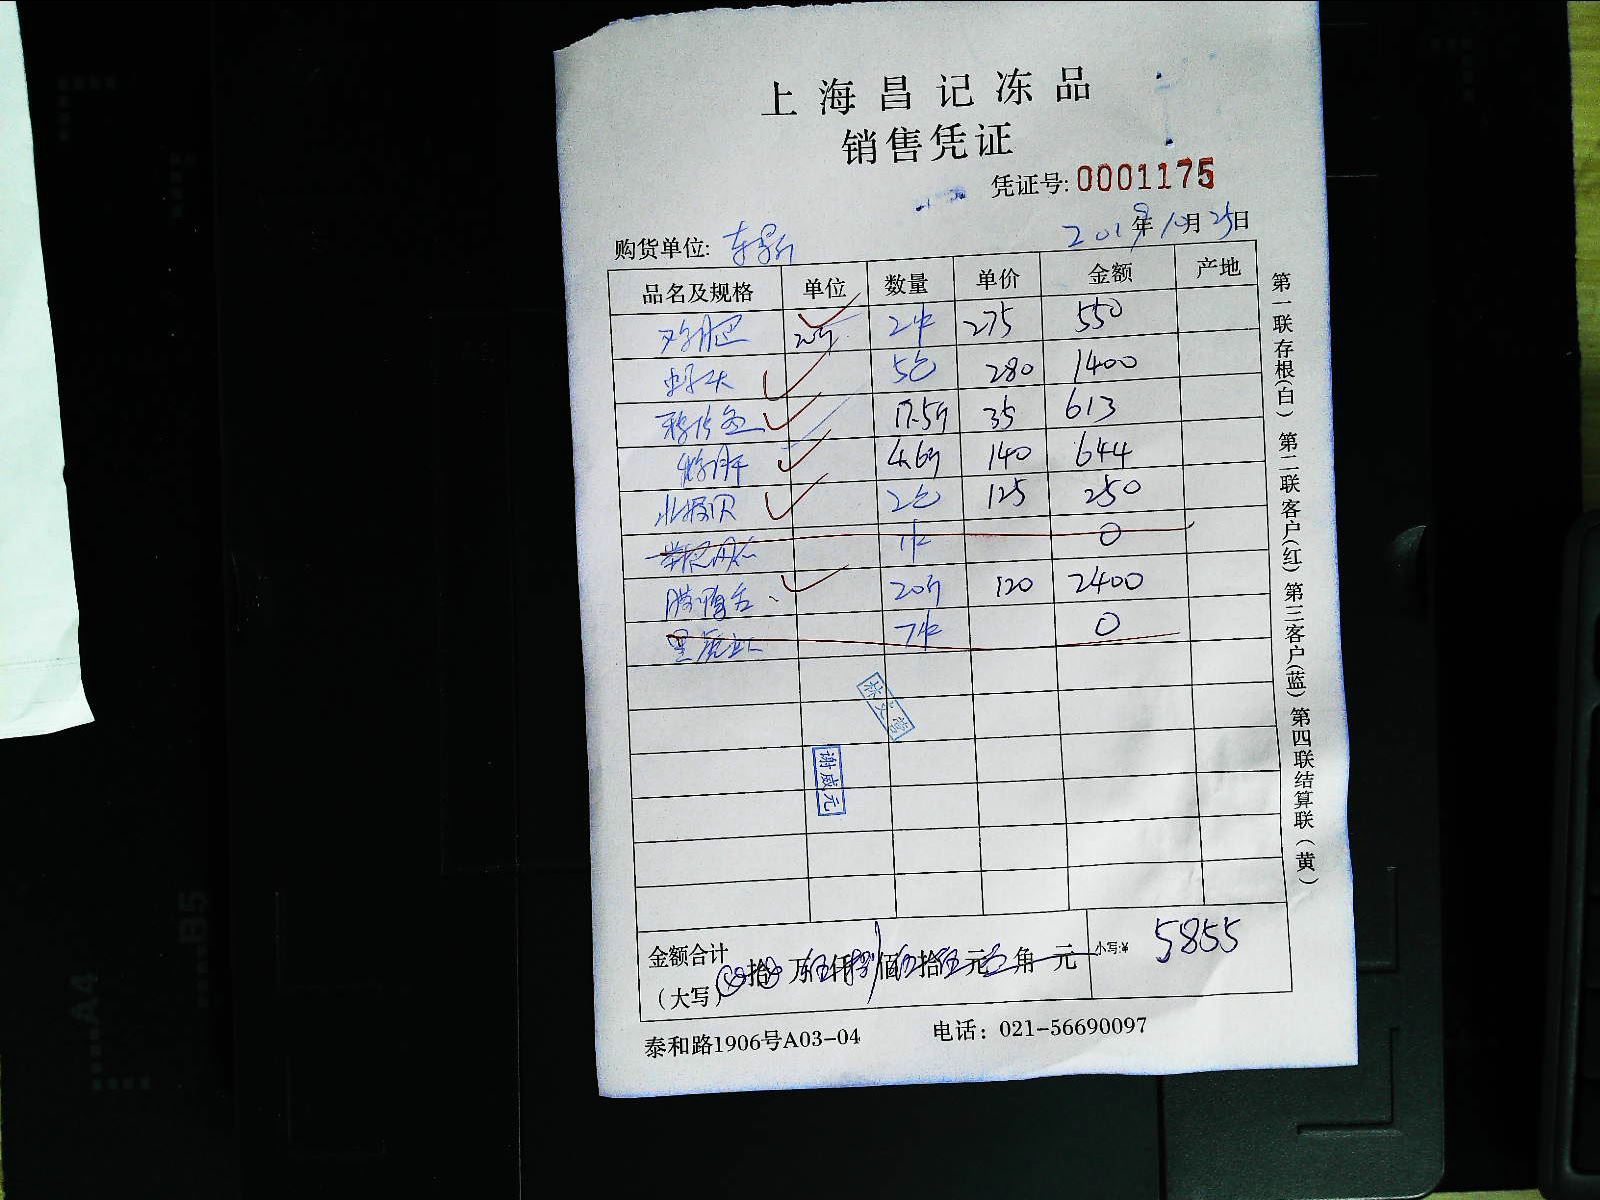 上海昌记冻品
销售凭证
凭证号: 0001175
购货单位:
2019年10月25日
品名及规格 单位 数量 单价 金额 产地
20斤 2件 275 550
5包 280 1400
17.5斤 35 613
4.6斤 140 644
北极贝 2包 125 250
1件 0
鸭舌 20斤 120 2400
黑虎虾 7件 0
谢威元
金额合计
(大写) 拾 万伍仟捌佰伍拾伍元 角 元 小写:¥ 5855
泰和路1906号A03-04 电话: 021-56690097
第一联存根(白) 第二联客户(红) 第三客户(蓝) 第四联结算联(黄)